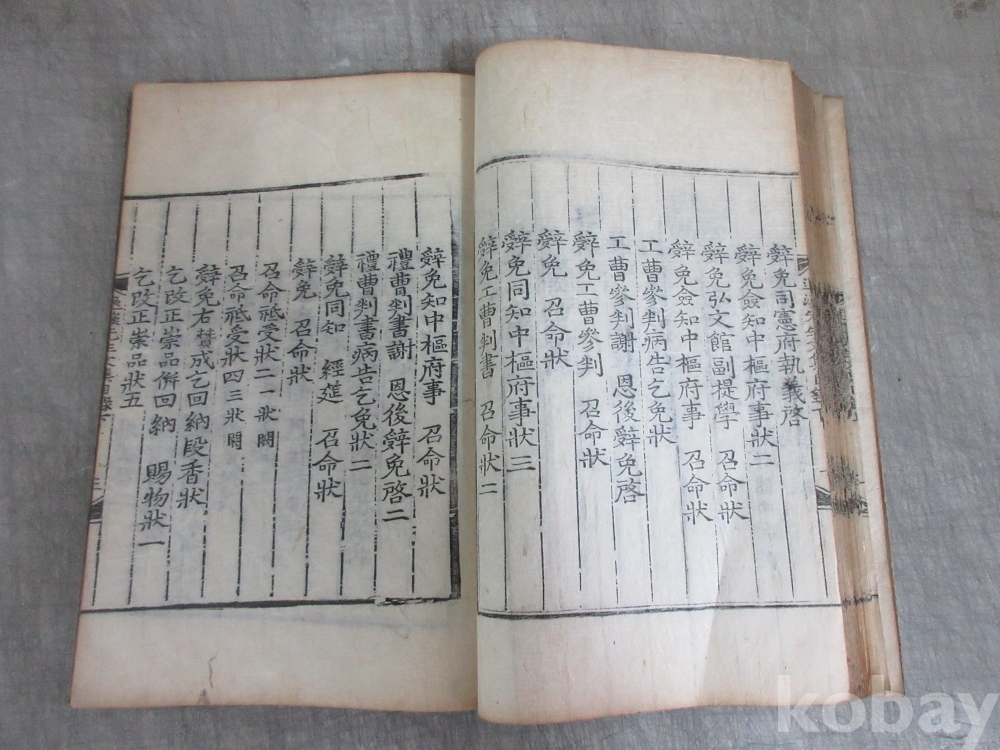 辭免司憲府執義啓
辭免僉知中樞府事狀二
辭免弘文館副提學 召命狀
辭免僉知中樞府事 召命狀
工曹參判病告乞免狀
工曹參判謝 恩後辭免啓
辭免工曹參判 召命狀
辭免 召命狀
辭免同知中樞府事狀三
辭免工曹判書 召命狀二
辭免知中樞府事 召命狀
禮曹判書謝 恩後辭免啓二
禮曹判書病告乞免狀二
辭免同知 經筵 召命狀
辭免 召命狀
召命祗受狀二一狀闕
召命祗受狀四三狀闕
辭免右贊成乞回納段香狀
乞改正崇品倂回納 賜物狀一
乞改正崇品狀五
kobay